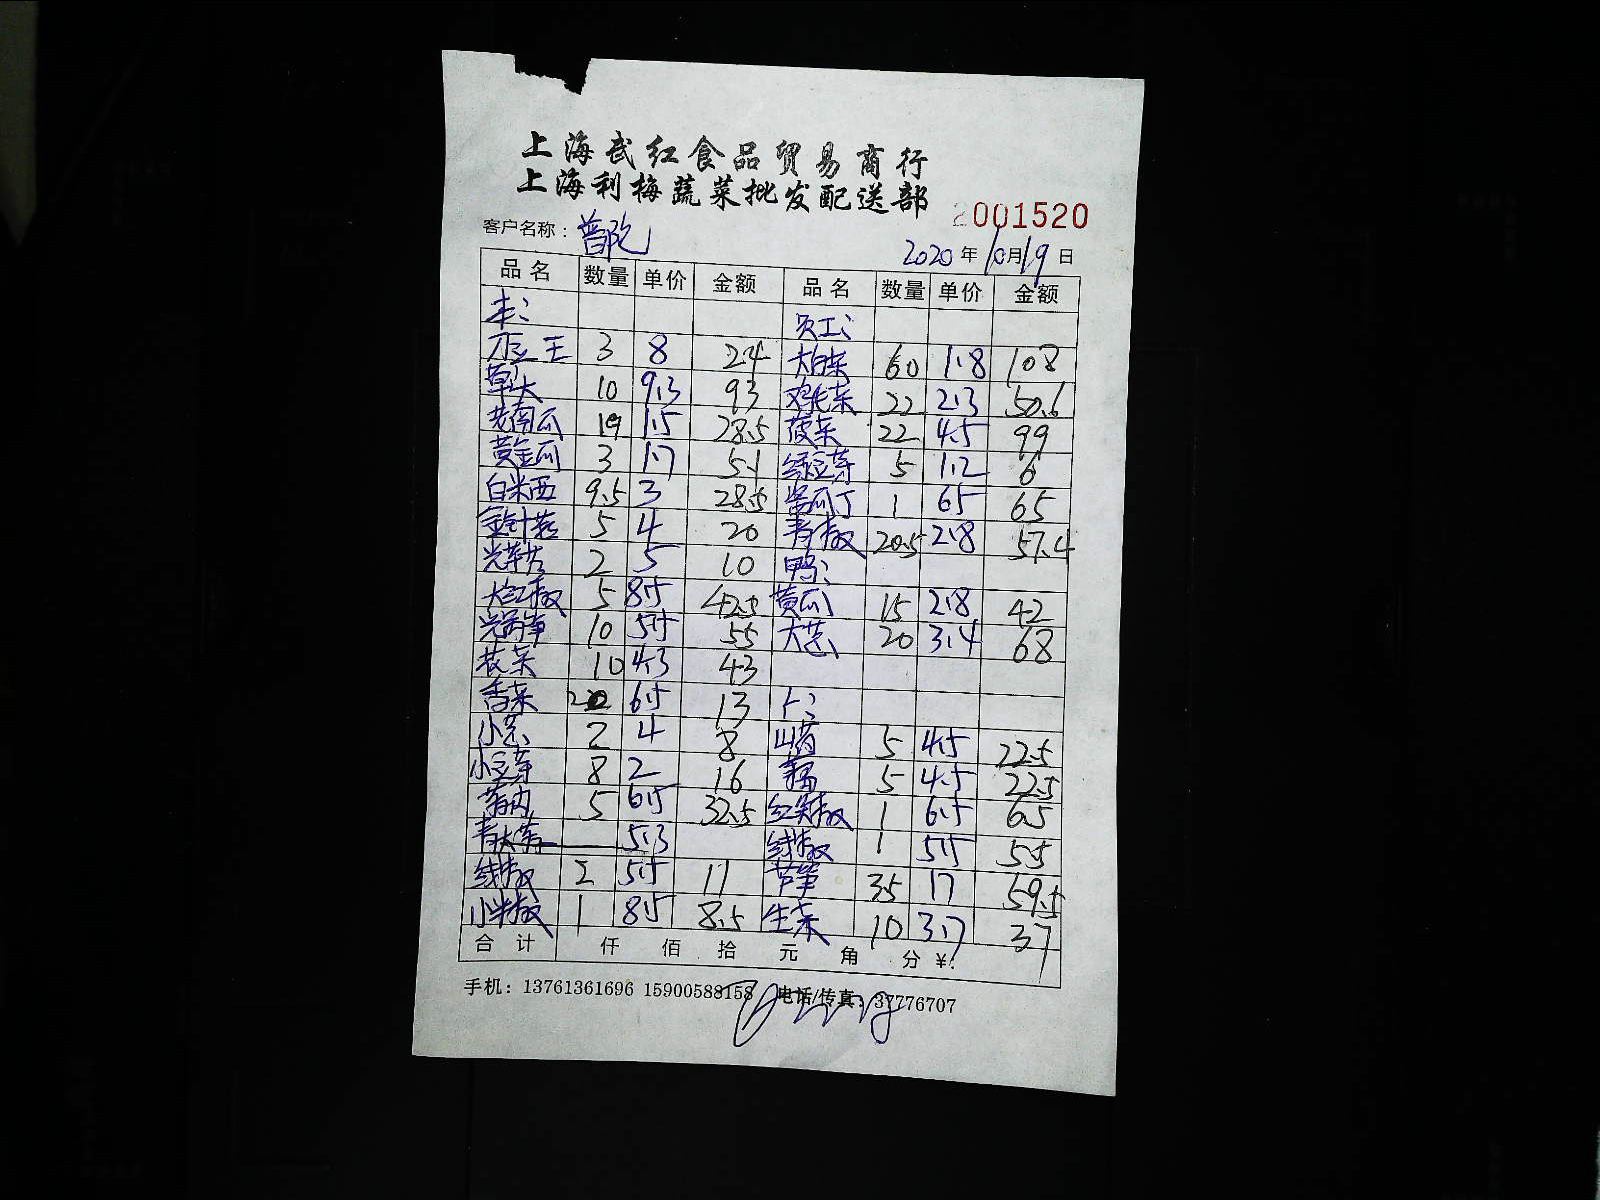 上海武红食品贸易商行
上海利梅蔬菜批发配送部
2001520
客户名称：普陀 2020年10月19日
品名 数量 单价 金额 品名 数量 单价 金额
本： 员工：
豆王 3 8 24 大白菜 60 1.8 108
草头 10 9.3 93 鸡毛菜 22 2.3 50.6
老南瓜 19 1.5 28.5 菠菜 22 4.5 99
黄金瓜 3 1.7 5.1 绿豆芽 5 1.2 6
白米西 9.5 3 28.5 酱瓜丁 1 65 65
金针菇 5 4 20 青椒 20.5 2.8 57.4
光 2 5 10 鸭：
大红椒 5 8.5 42.5 黄瓜 15 2.8 42
光莴笋 10 5.5 55 大葱 20 3.4 68
花菜 10 4.3 43
香菜 2 6.5 13 卜：
小葱 2 4 8 山药 5 4.5 22.5
小豆芽 8 2 16 藕 5 4.5 22.5
蒜肉 5 6.5 32.5 红尖椒 1 6.5 6.5
青大蒜 5.3 线椒 1 5.5 5.5
线椒 2 5.5 11 芦笋 3.5 17 59.5
小米椒 1 8.5 8.5 生菜 10 3.7 37
合计 仟 佰 拾 元 角 分 ¥:
手机：13761361696 15900588158 电话/传真：37776707